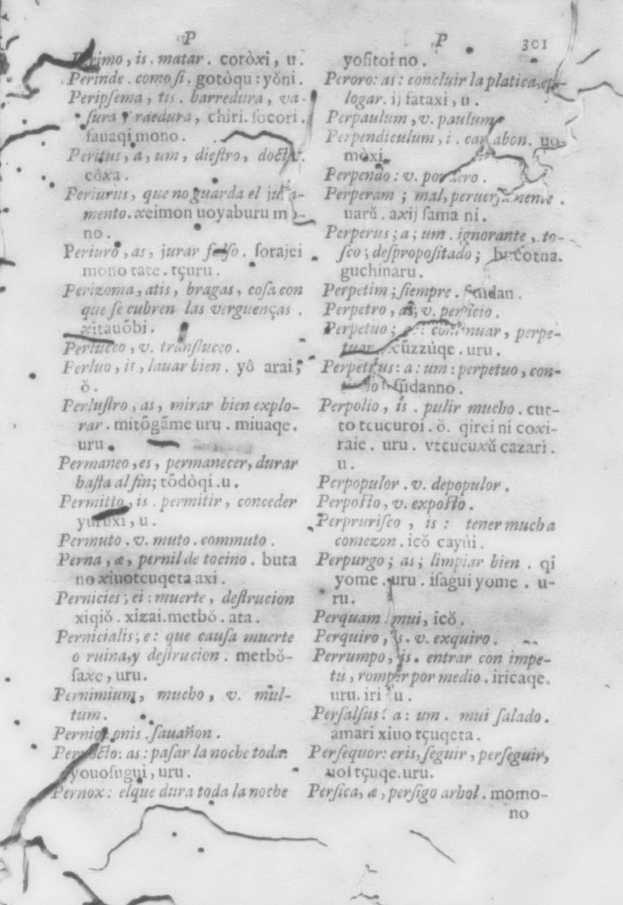 P
is. matar. coròxi, u.
Perinde. como si. gotòqu: yŏni.
Peripsema, tis. barredura, va-
sura y raedura, chiri. socori.
sauaqi mono.
Peritus, a, um, diestro,
còxa.
Periurus, que no guarda el
mento. xeimon uoyaburu
no.
Periuro, as, jurar falso. soragei
mono tate. tçuru.
Perizoma, atis, bragas, cosa con
que se cubren las verguenças.
xitauŏbi.
Perluceo, v. transluceo.
Perluo, is, lauar bien. yô arai,
ŏ.
Perlustro, as, mirar bien explo-
rar. mitŏgăme uru. miuaqe.
uru.
Permaneo, es, permanecer, durar
hasta al fin; tŏdòqi. u.
Permitto, is. permitir, conceder
yuruxi, u.
Permuto. v. muto. commuto.
Perna, æ, pernil de tocino. buta
no xiuotcuqeta axi.
Pernicies; ei: muerte, destrucion
xiqiŏ. xizai. metbŏ. ata.
Pernicialis, e: que causa muerte
o ruina, y destrucion. metbŏ-
saxe, uru.
Pernimium, mucho, v. mul-
tum.
onis. sauañon.
as: pasar la noche toda.
youosugui, uru.
Pernox: el que dura toda la noche
P
301
yofitoi no.
Peroro: as: concluir la platica,
logar. ij fataxi, u.
Perpaulum, v. paulum.
Perpendiculum, i. uo
mòxi.
Perpendo: v.
Perperam; mal,
uarŭ. axij sama ni.
Perperus; a; um. ignorante, to-
sco; despropositado;
guchinaru.
Perpetim; siempre.
Perpetro, as; v.
Perpetuo; continuar, perpe-
tuar. uru.
Perpetuus: a: um: perpetuo, con-
fudanno.
Perpolio, is. pulir mucho. cut-
to tcucuroi. ŏ. qirei ni coxi-
raie. uru. vtcucuxŭ cazari.
u.
Perpopulor. v. depopulor.
Perposto, v. exposto.
Perprurisco, is: tener mucha
comezon. icŏ cayui.
Perpurgo; as; limpiar bien. qi
yome. uru. isagui yome. u-
ru.
Perquam. mui, icŏ.
Perquiro, is. v. exquiro.
Perrumpo, is. entrar con impe-
tu, romper por medio. iricaqe.
uru. iri u.
Persalsus: a: um. mui salado.
amari xiuo tçuqeta.
Persequor: eris, seguir, perseguir,
uoi tçuqe. uru.
Persica, æ, persigo arbol. momo-
no